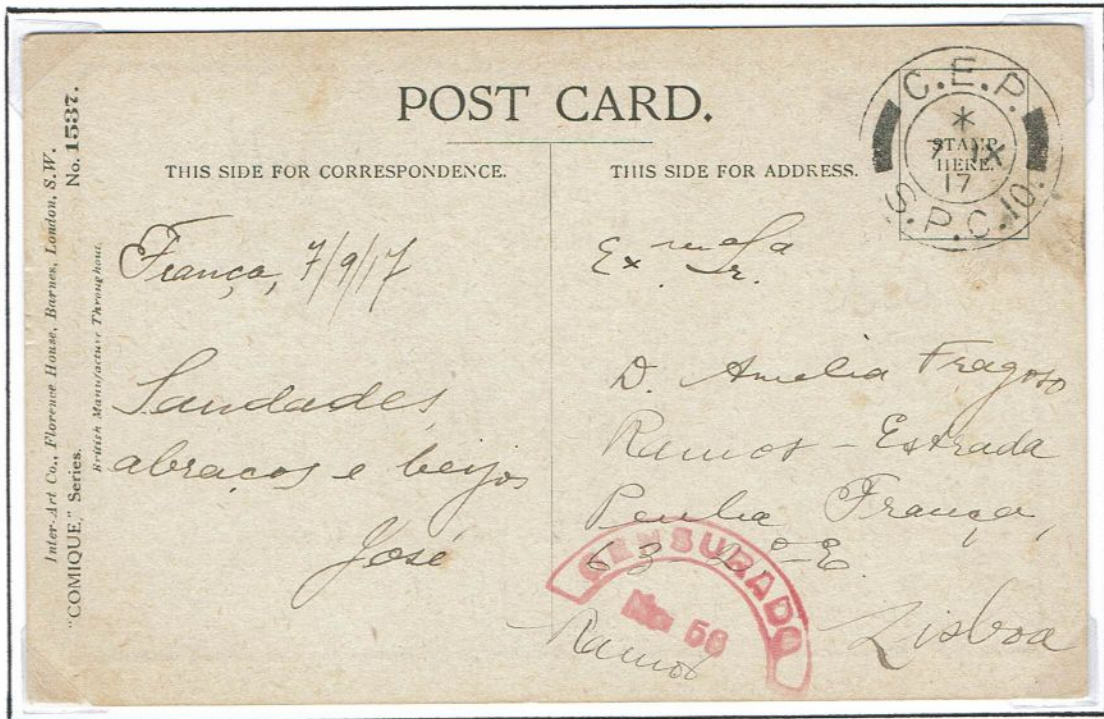 POST CARD.
THIS SIDE FOR CORRESPONDENCE.
THIS SIDE FOR ADDRESS.
C.E.P.
*
STAMP
HERE.
7 IX
17
S.P.C. 10.
Inter-Art Co., Florence House, Barnes, London, S.W.
"COMIQUE," Series. No. 1537.
British Manufacture Throughout.
França, 7/9/17
Saudades,
abraços e beijos
José
Ex ma Sr. a
D. Amelia Fragoso
Ramos - Estrada
Penha França,
63 2º E.
Lisboa
CENSURADO
No 56
Ramos